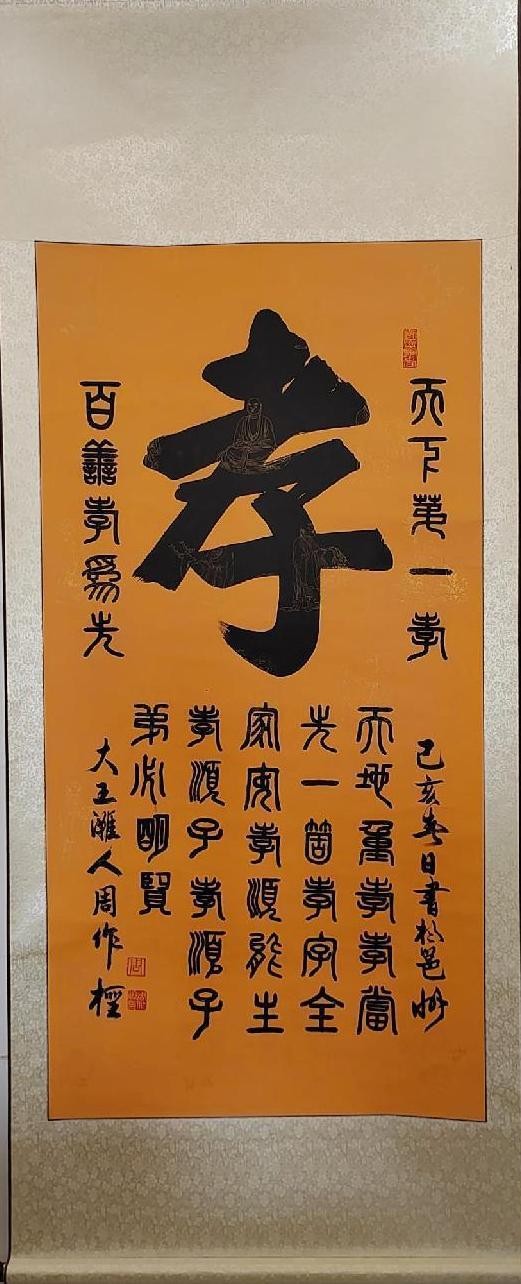 孝
天下第一孝
百善孝為先
天地重孝孝當
先一箇孝字全
家安孝順能生
孝順子孝順子
弟必明賢
己亥春日書於邕州
大王灘人周作
周